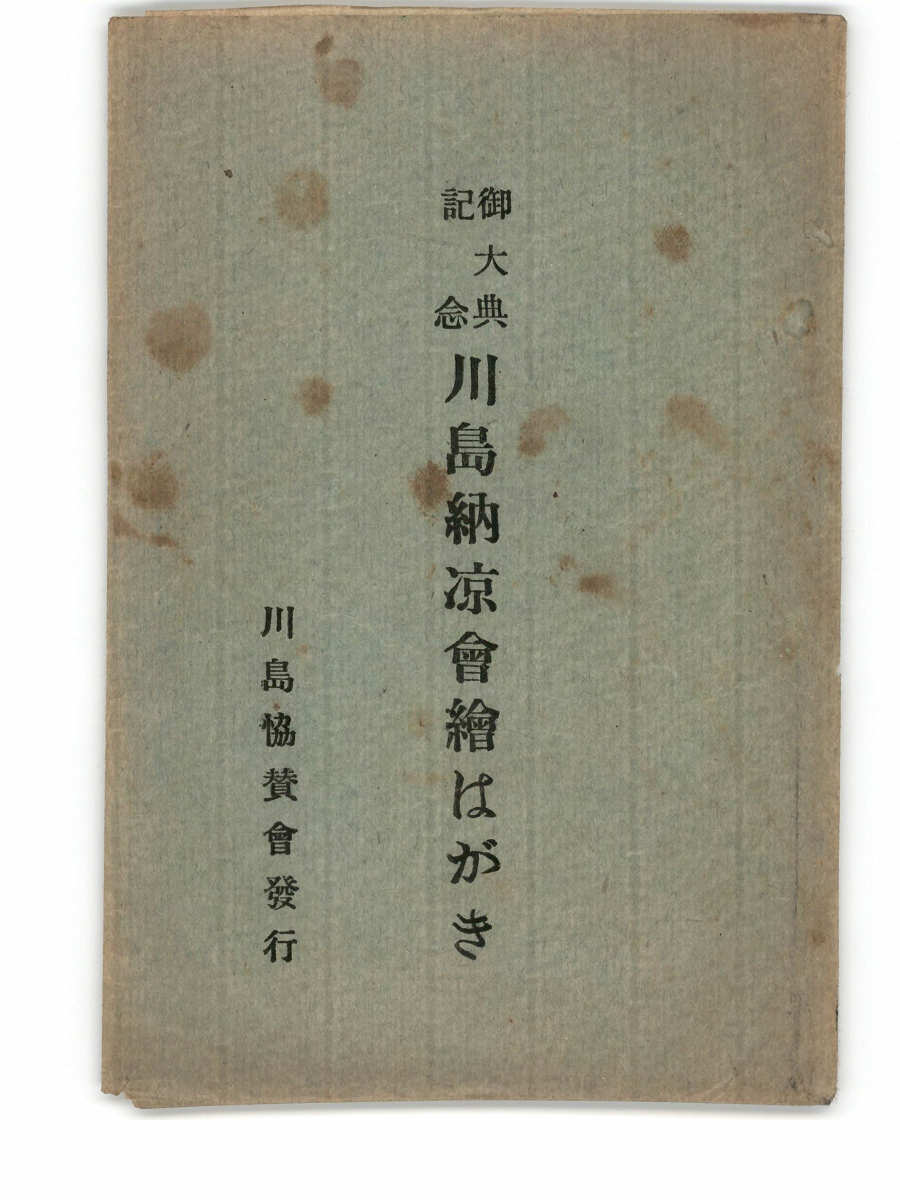 御大典
記念
川島納凉會繪はがき
川島協賛會發行